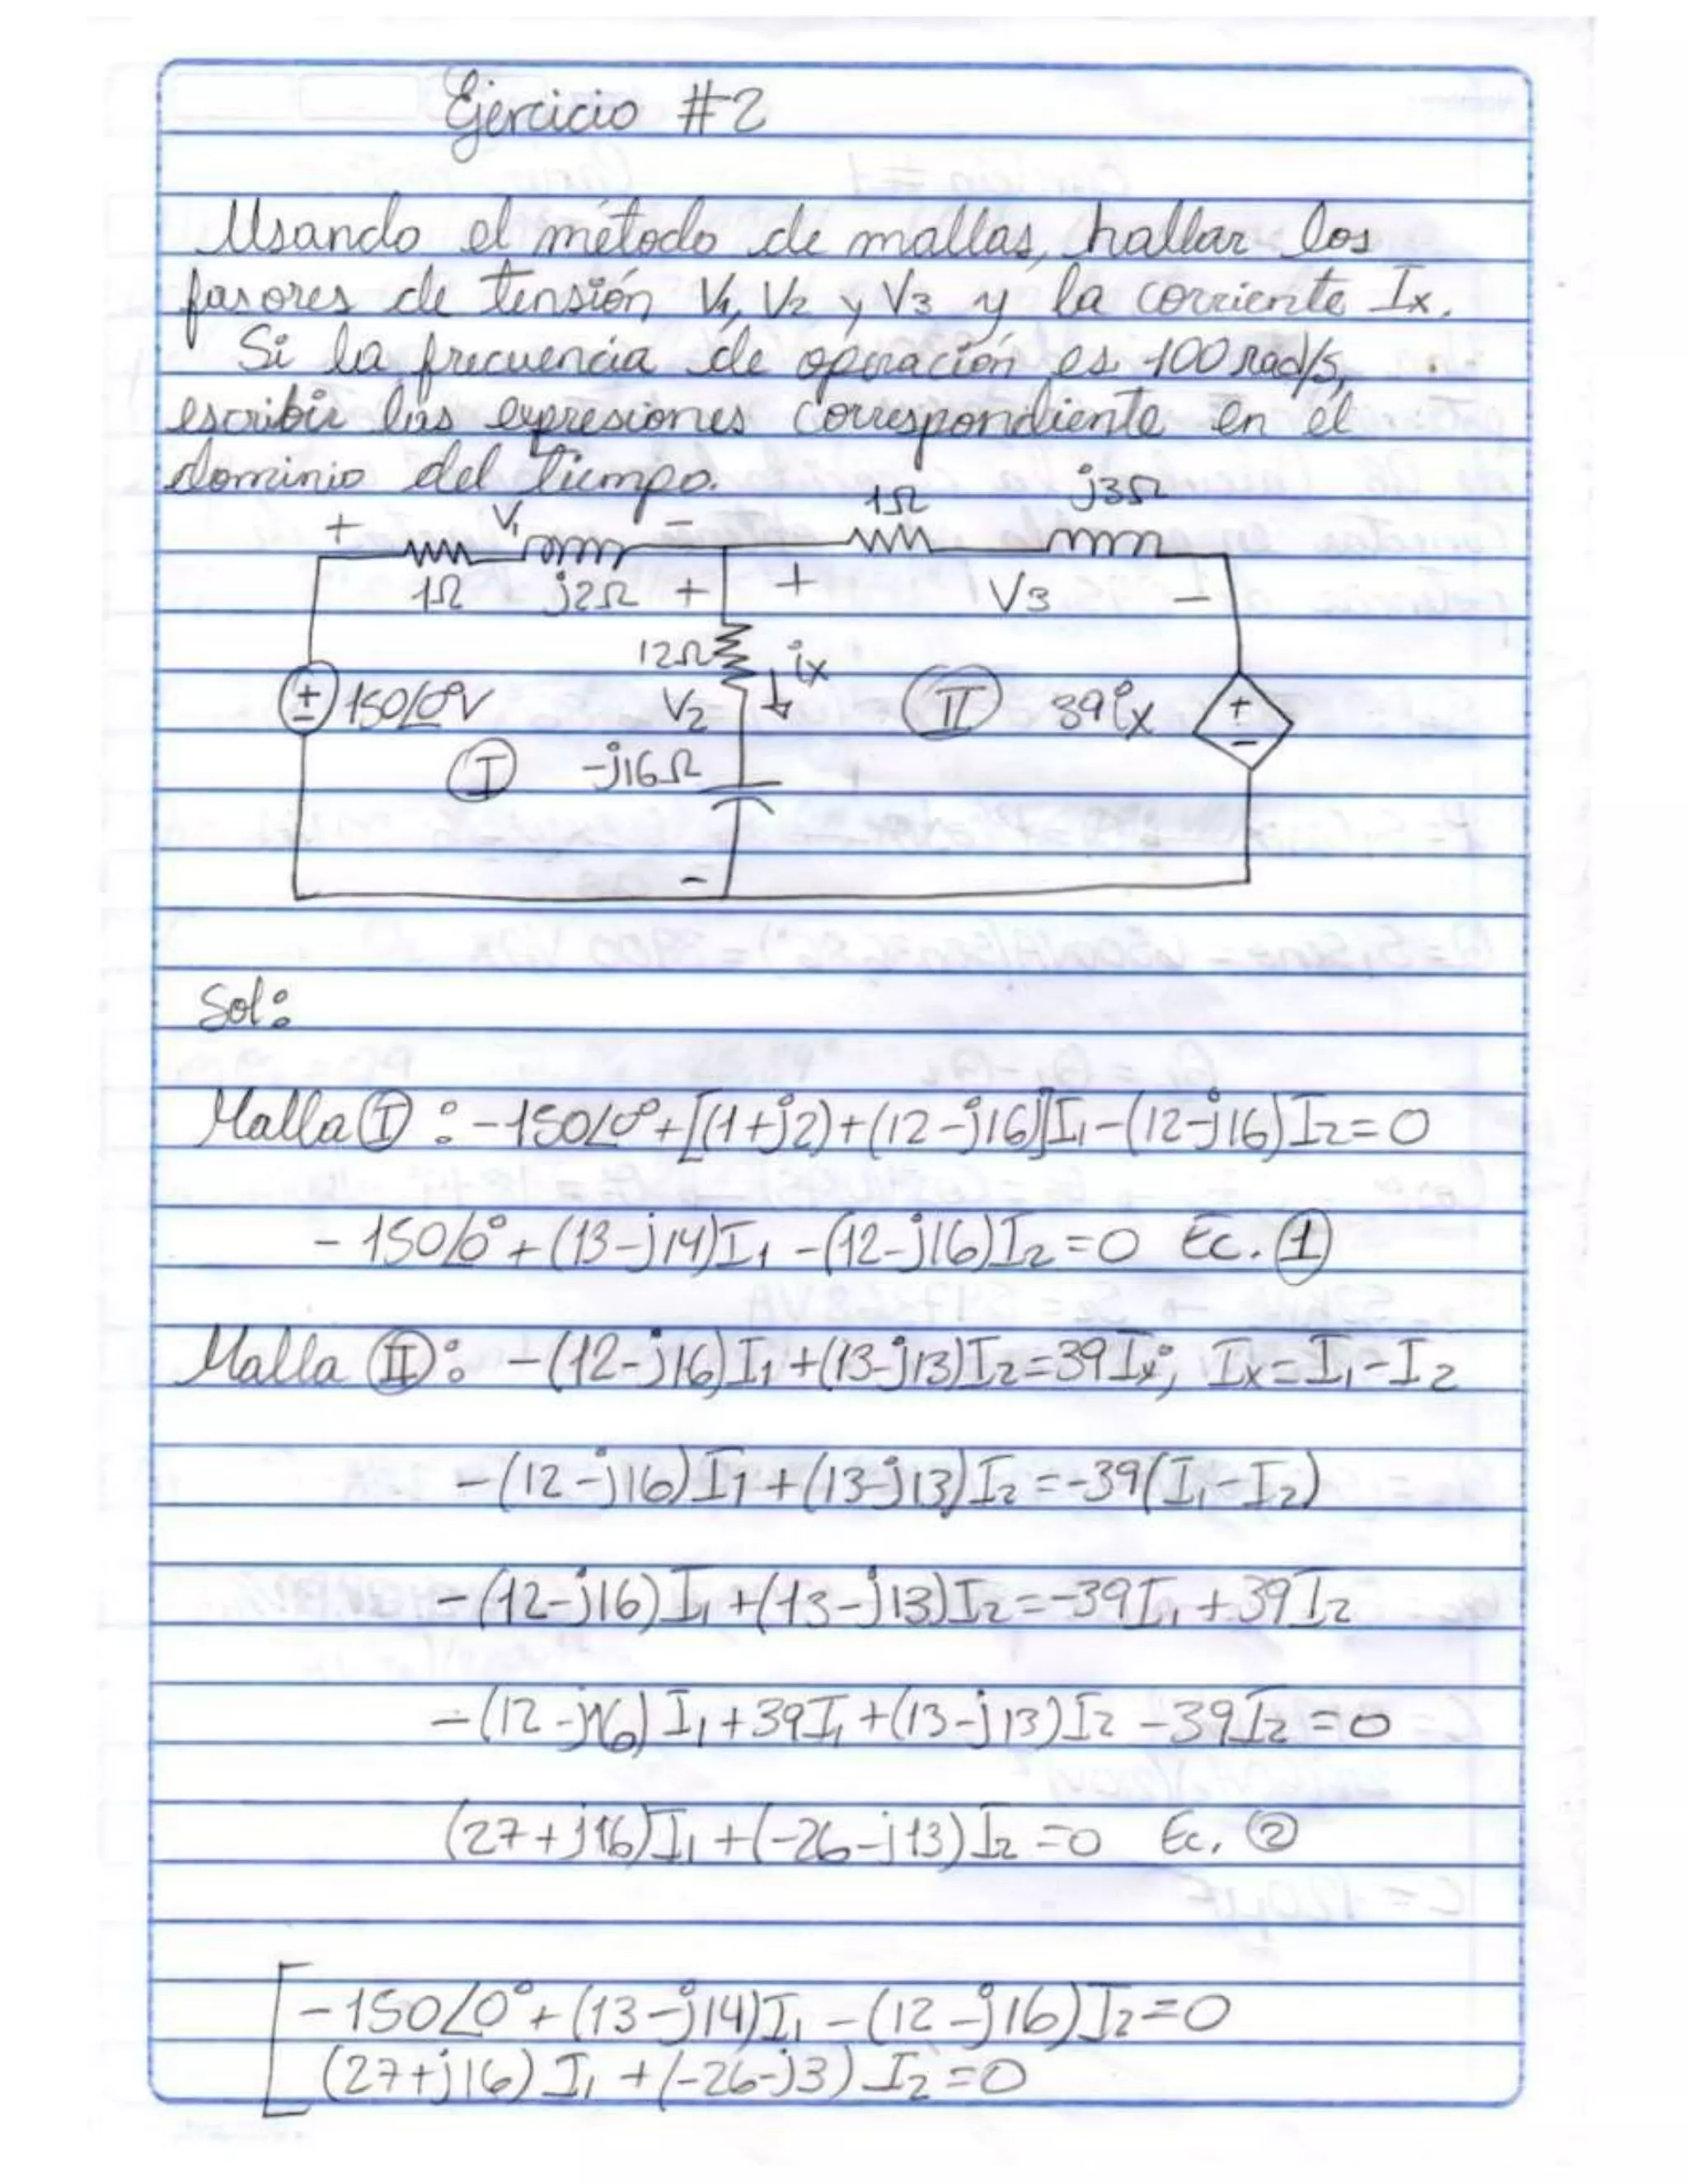 Ejercicio #2
Usando el método de mallas, hallar los
fasores de tensión V1, V2 y V3 y la corriente Ix.
Si la frecuencia de operación es 100 rad/s,
escribir las expresiones correspondiente en el
dominio del tiempo.
1Ω j3Ω
+ V1 -
1Ω j2Ω + + V3 -
12Ω ix
+ - 150∠0°V V2 II 39ix + -
I -j16Ω
-
Sol:
Malla I: -150∠0°+[(1+j2)+(12-j16)]I1-(12-j16)I2=0
-150∠0°+(13-j14)I1-(12-j16)I2=0 Ec. 1
Malla II: -(12-j16)I1+(13-j13)I2=39Ix; Ix=I1-I2
-(12-j16)I1+(13-j13)I2=-39(I1-I2)
-(12-j16)I1+(13-j13)I2=-39I1+39I2
-(12-j16)I1+39I1+(13-j13)I2-39I2=0
(27+j16)I1+(-26-j13)I2=0 Ec. 2
-150∠0°+(13-j14)I1-(12-j16)I2=0
(27+j16)I1+(-26-j3)I2=0